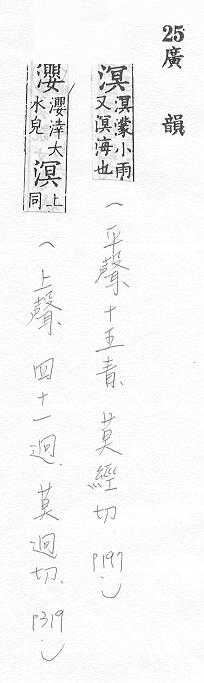 25廣韻
溟 溟濛小雨
又溟海也
(平聲、十五青、莫經切 P197)
瀴 瀴涬大
水皃 溟 上
同
(上聲、四十一迥、莫迥切、P319)